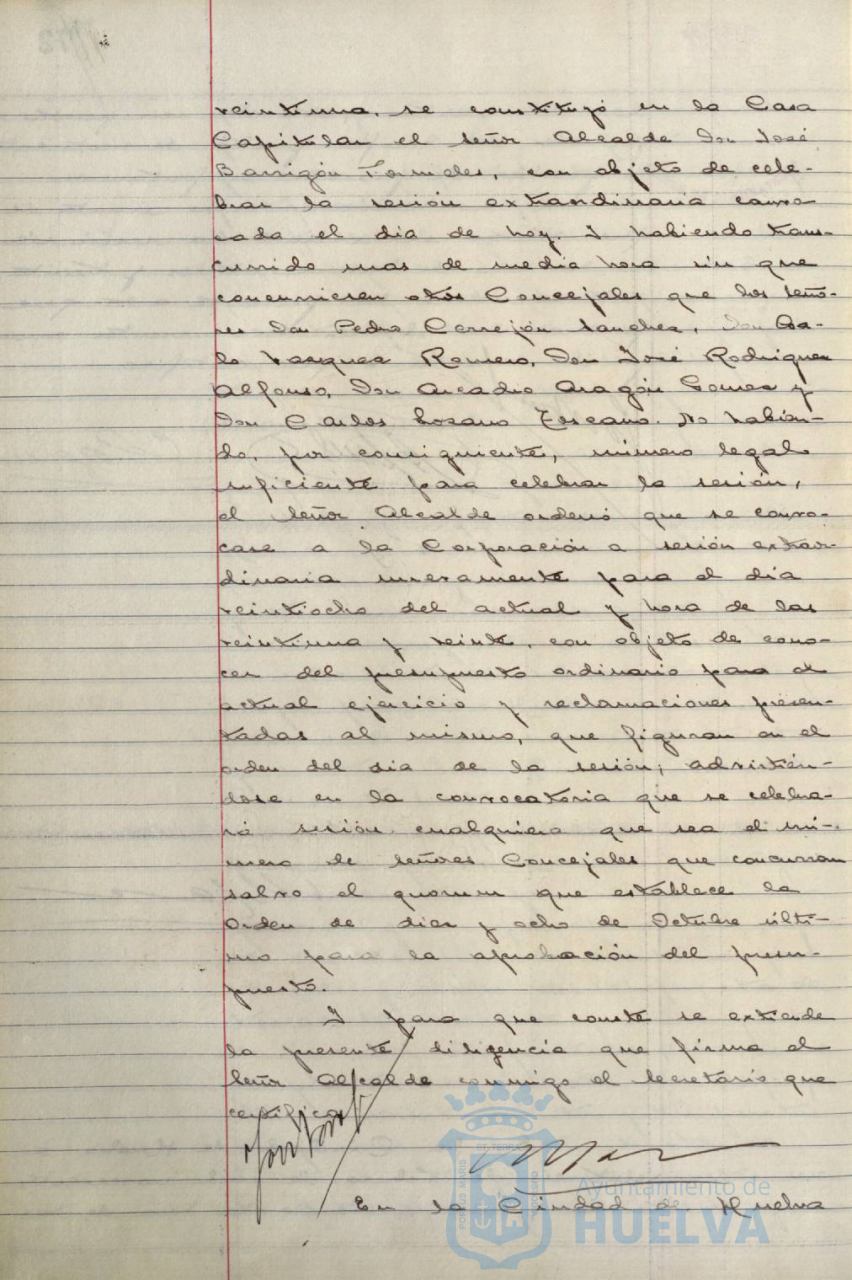 veintiuna, se constituyó en la Casa
Capitular el señor Alcalde Don José
Barrigón Fornieles, con objeto de cele-
brar la sesión extraordinaria convo-
cada el dia de hoy. Y habiendo trans-
currido mas de media hora sin que
concurriesen otros Concejales que los seño-
res Don Pedro Cerrejón Sanchez, Don
Vazquez Romero, Don José Rodriguez
Alfonso, Don Arcadio Aragón Gomez y
Don Carlos Lozano Toscano. No habien-
do, por consiguiente, número legal
suficiente para celebrar la sesión,
el Señor Alcalde ordenó que se convo-
case a la Corporación a sesión extraor-
dinaria nuevamente para el dia
veintiocho del actual y hora de las
veintiuna y veinte, con objeto de cono-
cer del presupuesto ordinario para el
actual ejercicio y reclamaciones presen-
tadas al mismo, que figuran en el
orden del dia de la sesión; advirtién-
dose en la convocatoria que se celebra-
rá sesión cualquiera que sea el nú-
mero de señores Concejales que concurran
salvo el quorum que establece la
Orden de diez y ocho de Octubre últi-
mo para la aprobación del presu-
puesto.
Y para que conste se extiende
la presente diligencia que firma el
Señor Alcalde conmigo el Secretario que
certifica
En la Ciudad de Huelva
Ayuntamiento de
HUELVA